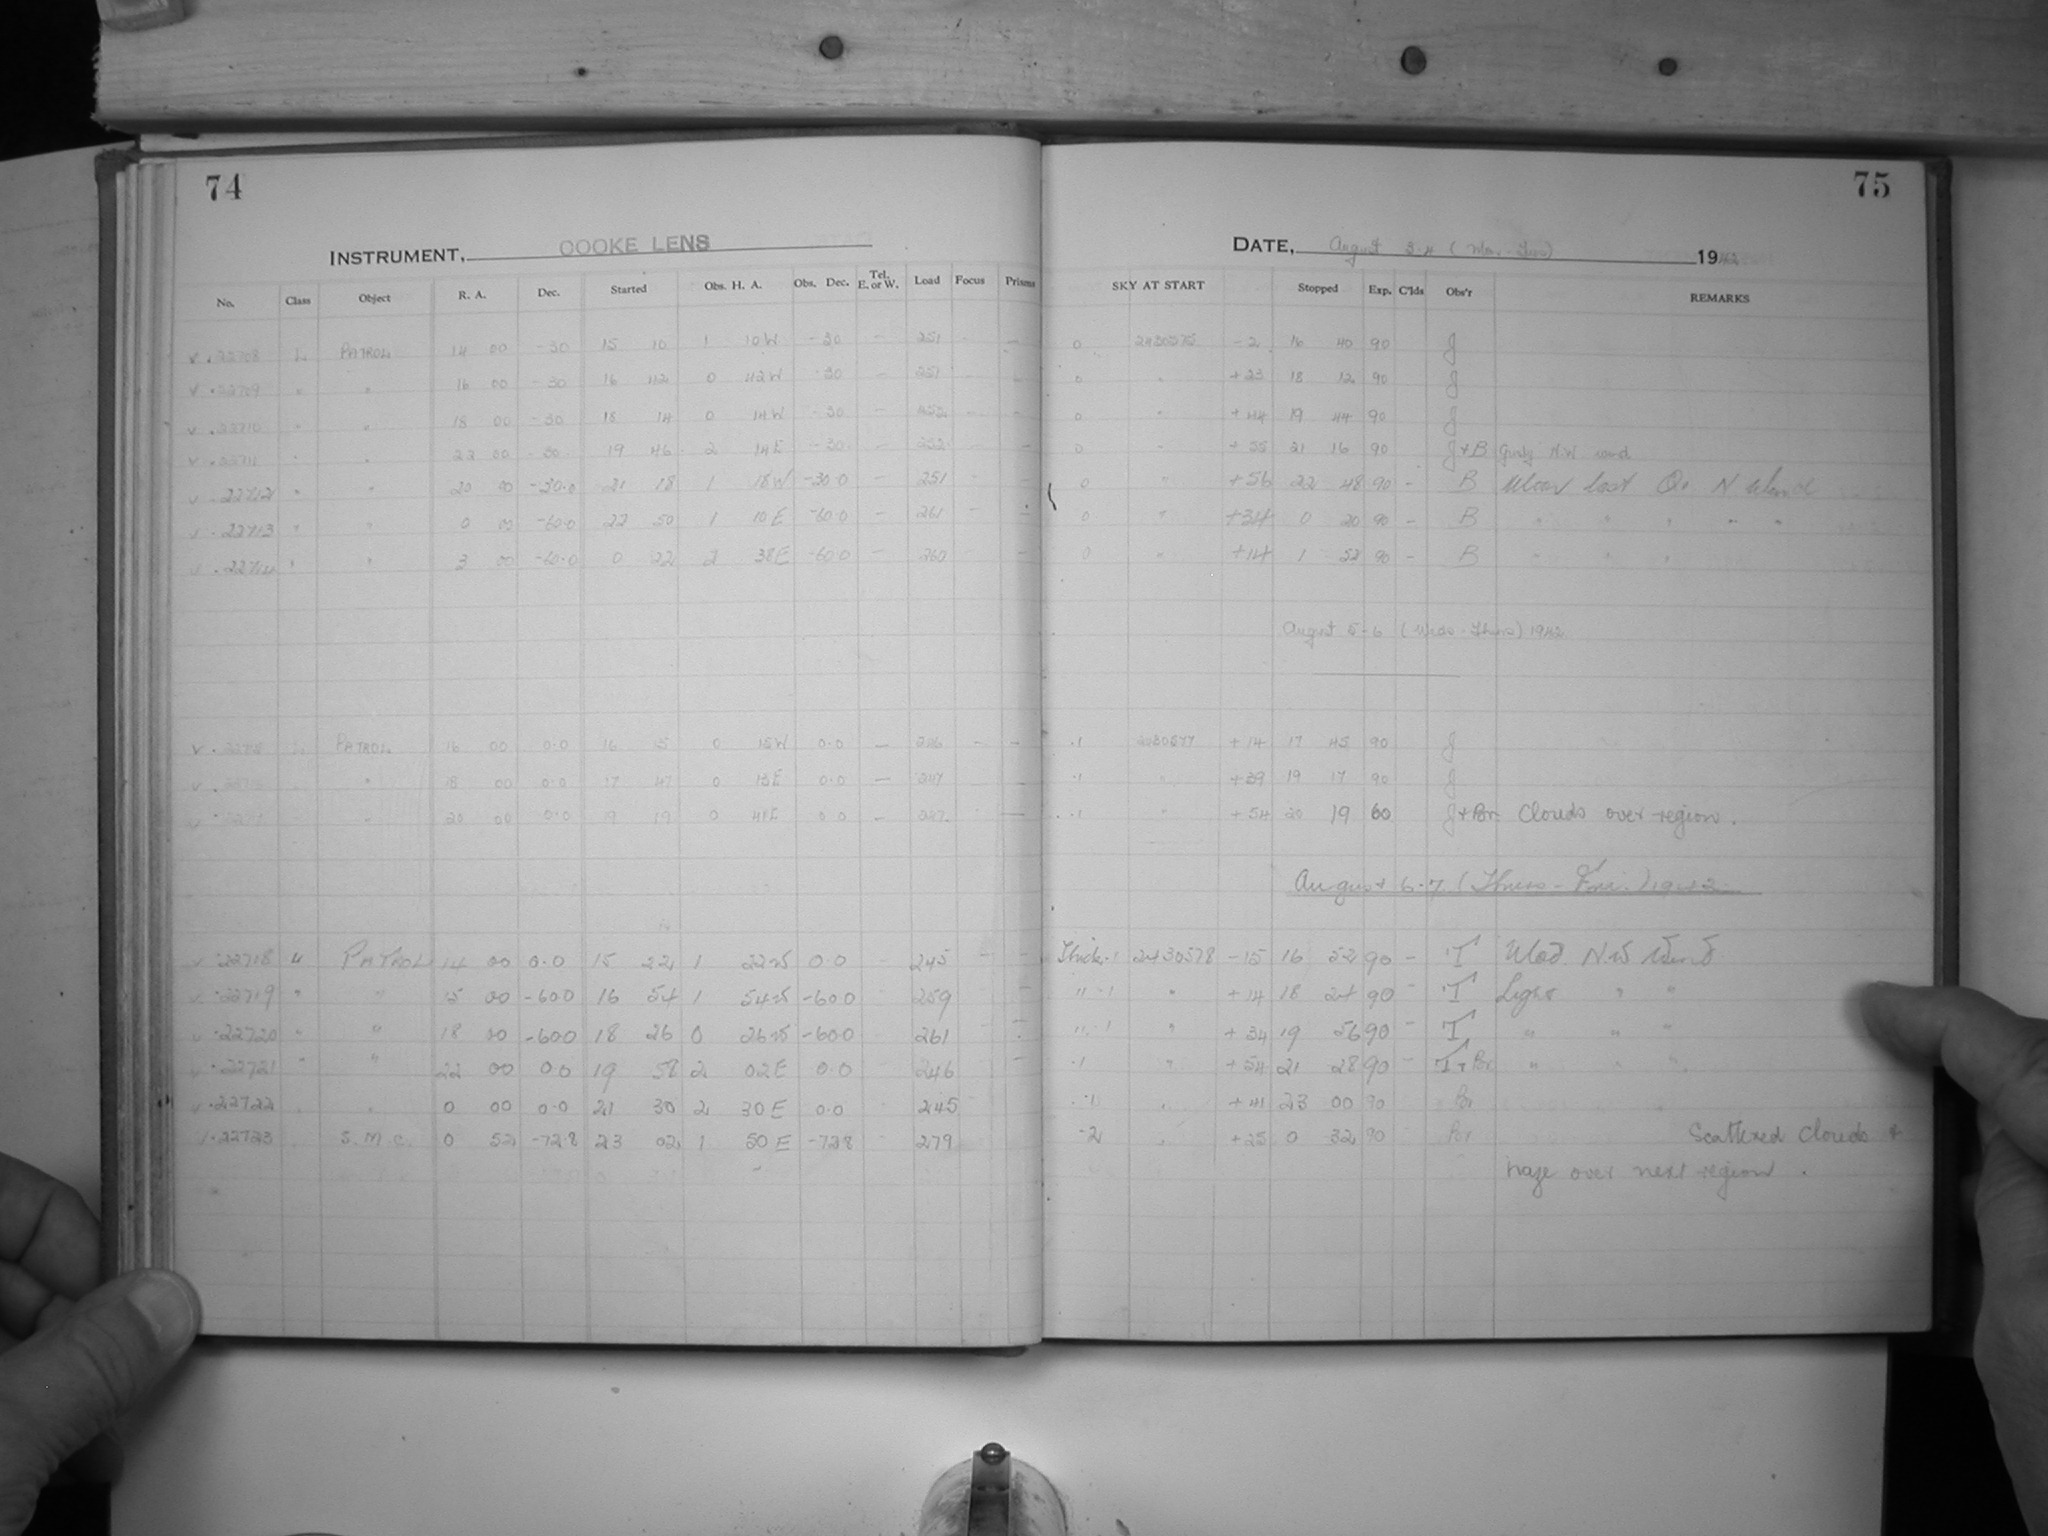 74
INSTRUMENT, COOKE LENS
No. Class Object R. A. Dec. Started Obs. H. A. Obs. Dec. Tel. E. or W. Load Focus Prisms
22708 L PATROL 14 00 -30 15 10 1 10W -30 — 251 - —
22709 " " 16 00 -30 16 42 0 42W -30 — 251 - -
22710 " " 18 00 -30 18 14 0 14W -30 — - -
22711 " " 22 00 -30 19 46 2 14E -30 — 252 - -
22712 " " 20 00 -30.0 21 18 1 18W -30.0 — 251 - -
22713 " " 0 00 -60.0 22 50 1 10E -60.0 — 261 - -
22714 " " 3 00 -60.0 0 22 2 38E -60.0 — 260 -
PATROL 16 00 0.0 16 15 0 15W 0.0 — 246 - -
" 18 00 0.0 17 47 0 13E 0.0 — 247 —
" 20 00 0.0 19 19 0 41E 0.0 - 247 —
22718 " PATROL 14 00 0.0 15 22 1 22W 0.0 - 245 - -
22719 " " 15 00 -60.0 16 54 1 54W -60.0 259 -
22720 " " 18 00 -60.0 18 26 0 26W -60.0 261 -
22721 " " 22 00 0.0 19 58 2 02E 0.0 246 -
22722 " " 0 00 0.0 21 30 2 30E 0.0 245
22723 S.M.C. 0 52 -72.8 23 02 1 50E -72.8 279
75
DATE, August 3-4 (Mon.-Tues) 1942
SKY AT START Stopped Exp. C'lds Obs'r REMARKS
0 2430575 -2 16 40 90 J
0 " +23 18 12 90 J
0 " +44 19 44 90 J
0 " +55 21 16 90 J+B Gusty N.W wind
0 " +56 22 48 90 - B Moon last Qr N Wind
0 " +34 0 20 90 - B " " " " "
0 " +14 1 52 90 - B " " "
August 5-6 (Weds-Thurs) 1942
.1 2430577 +14 17 45 90 J
.1 " +39 19 17 90 J
.1 " +54 20 19 60 J+Br. Clouds over region.
August 6-7 (Thurs-Fri.) 1942
Thick.1 2430578 -15 16 52 90 - T Mod NW Wind
" .1 " +14 18 24 90 - T Light " "
" .1 " +34 19 56 90 - T " " "
.1 " +54 21 28 90 - " " "
.1 " +41 23 00 90
.2 " +25 0 32 90 Scattered clouds &
haze over next region.